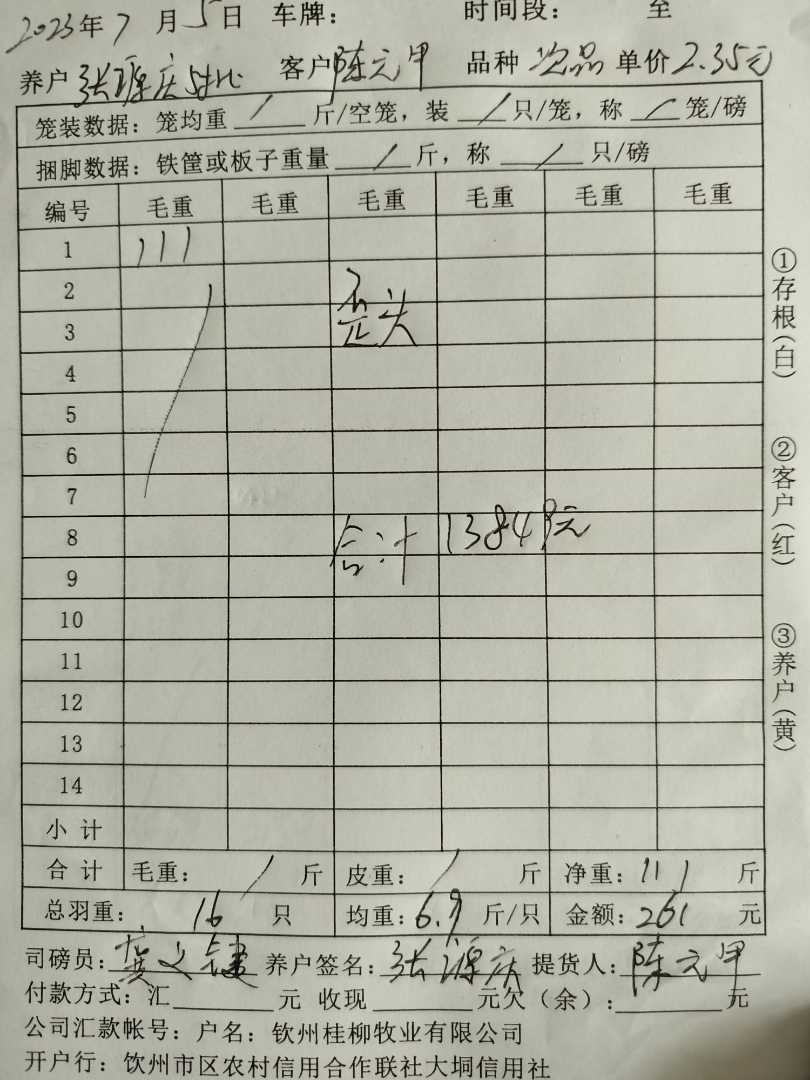 2023年7月5日 车牌: 时间段: 至
养户 张源庆 客户 陈元甲 品种 次品 单价 2.35元
笼装数据: 笼均重 / 斤/空笼, 装 / 只/笼, 称 / 笼/磅
捆脚数据: 铁筐或板子重量 / 斤, 称 / 只/磅
编号 毛重 毛重 毛重 毛重 毛重 毛重
1 111
2
3 歪头
4
5
6
7
8 合计 13849元
9
10
11
12
13
14
小计
合计 毛重: / 斤 皮重: / 斤 净重: 111 斤
总羽重: 16 只 均重: 6.9 斤/只 金额: 261 元
司磅员: 龚文健 养户签名: 张源庆 提货人: 陈元甲
付款方式: 汇 元 收现 元欠(余): 元
公司汇款帐号: 户名: 钦州桂柳牧业有限公司
开户行: 钦州市区农村信用合作联社大垌信用社
①存根(白)
②客户(红)
③养户(黄)